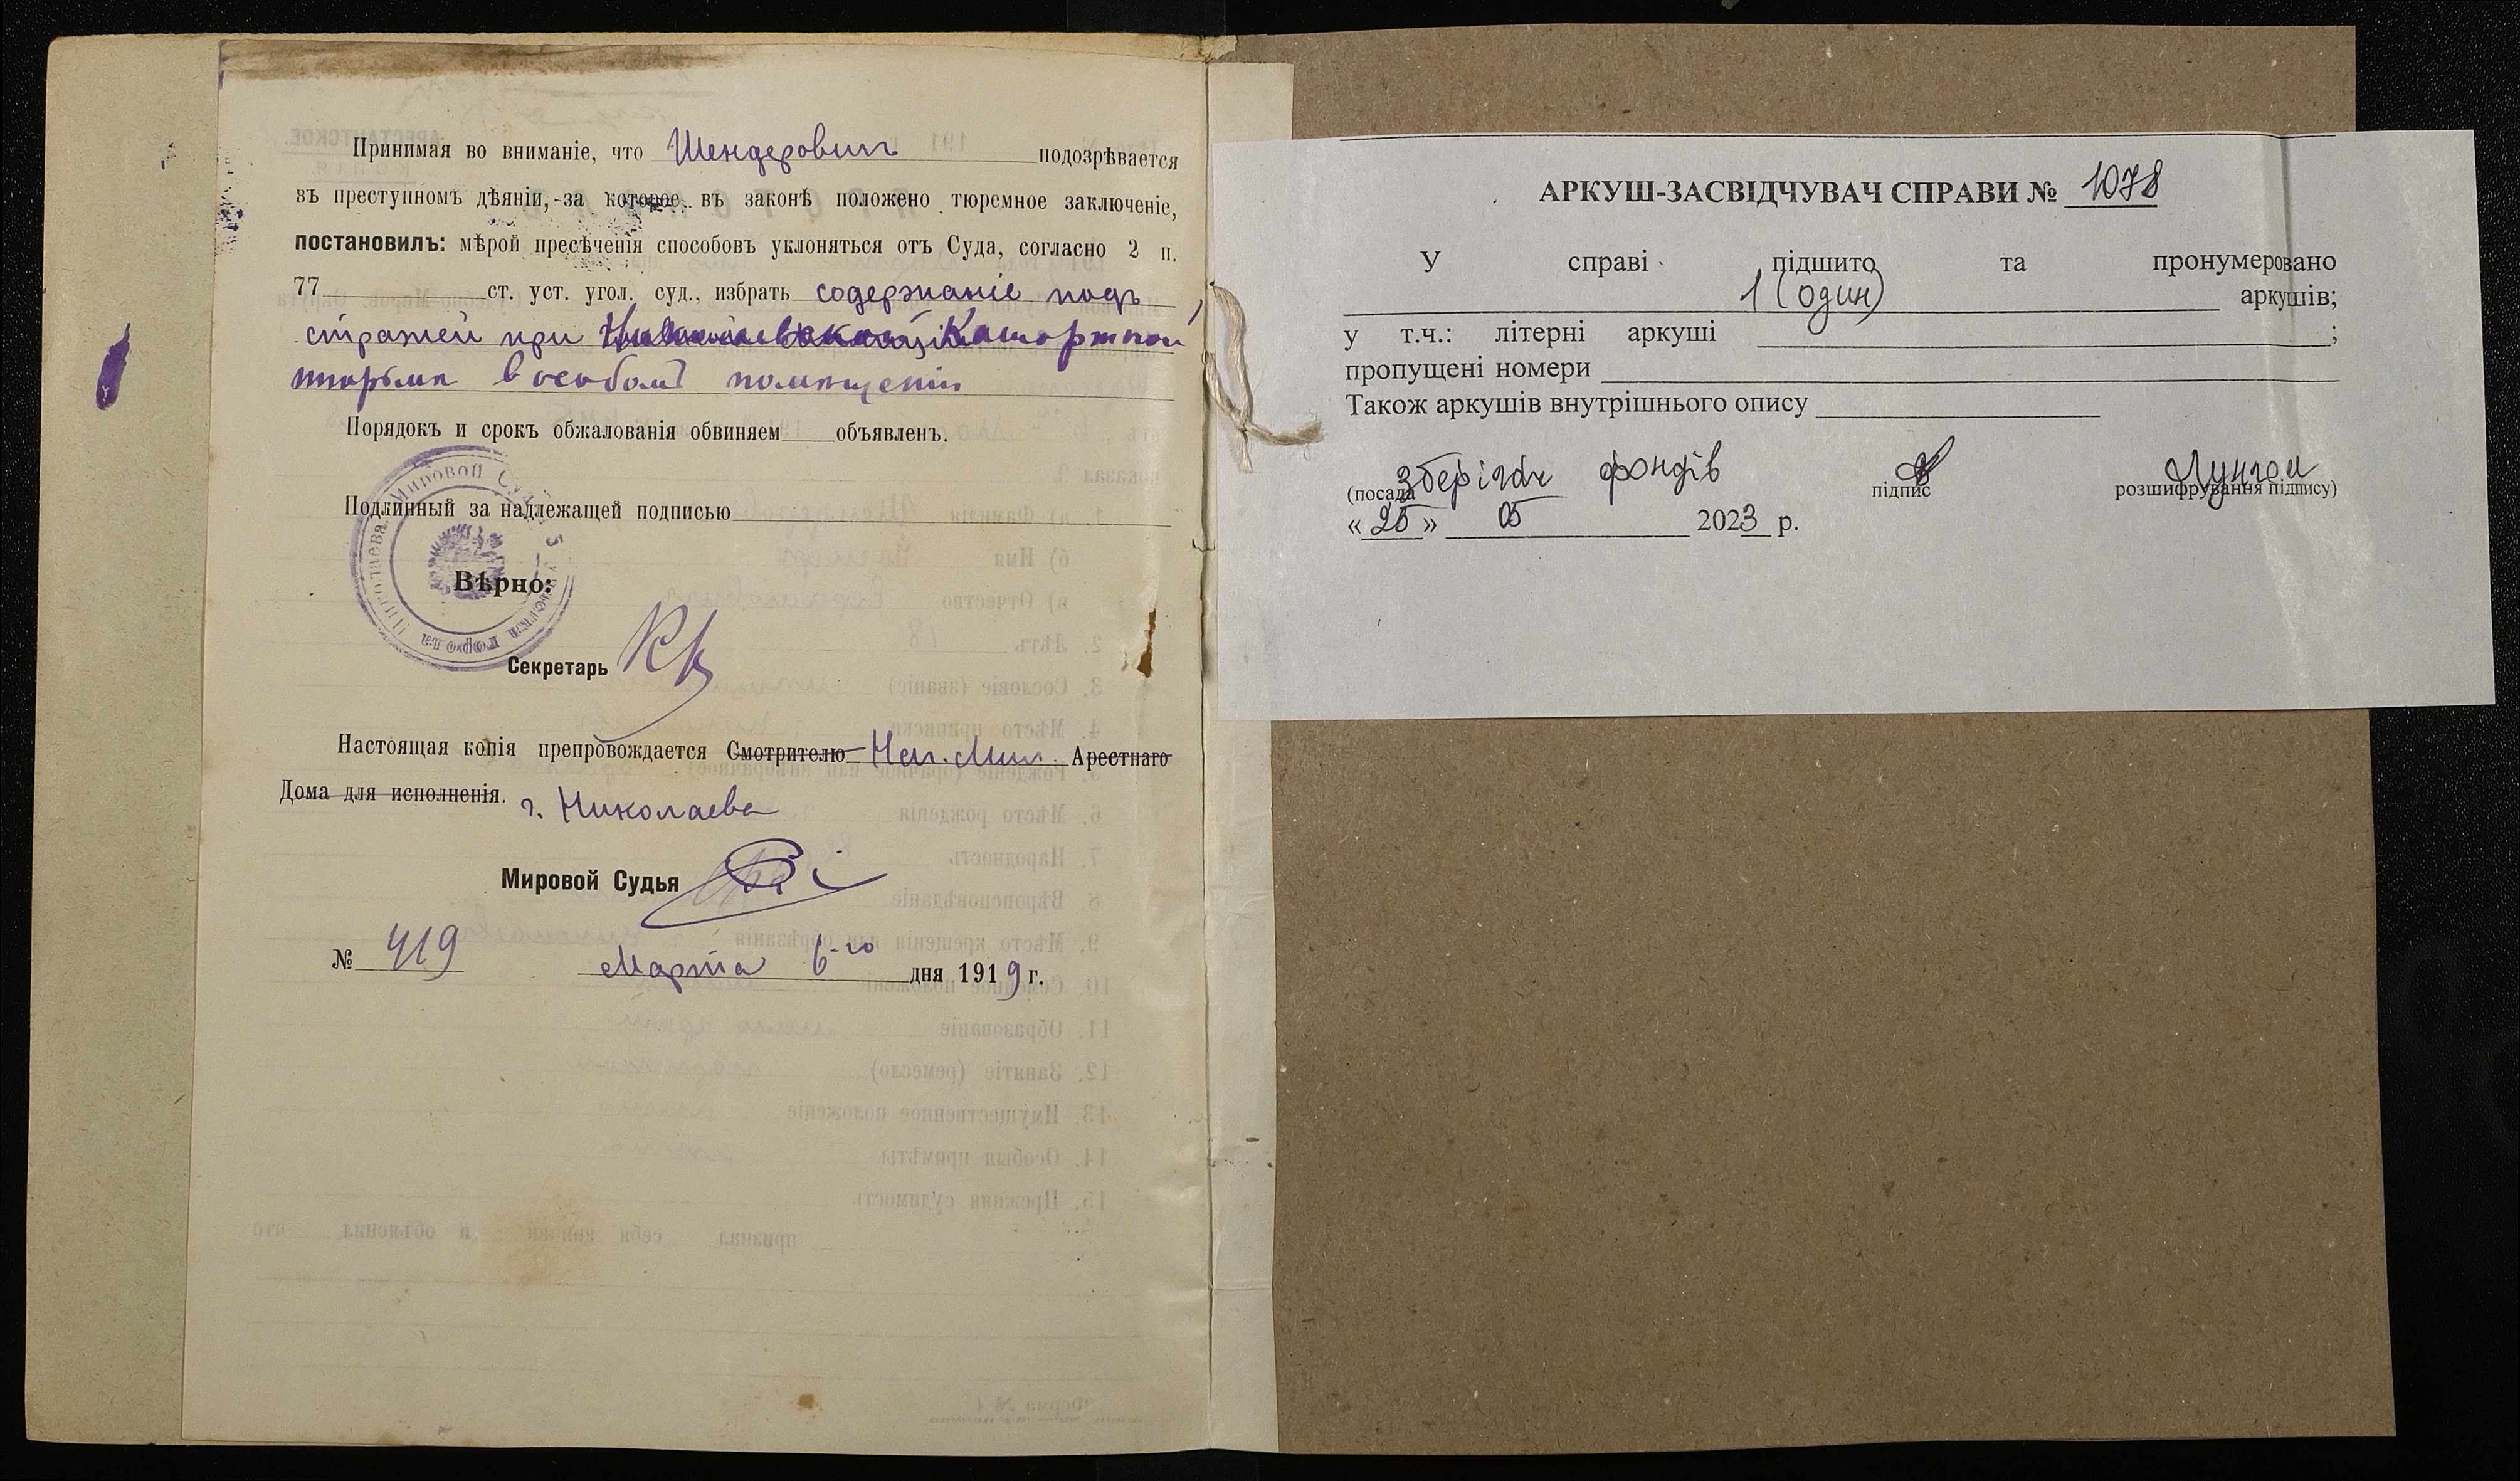 Принимая во вниманіе, что Шендерович подозрѣвается
въ преступномъ дѣяніи, за которое въ законѣ положено тюремное заключеніе,
постановилъ: мѣрой пресѣченія способовъ уклоняться отъ Суда, согласно 2 п.
77 ст. уст. угол. суд., избрать содержаніе подъ
стражей при Каторжной
тюрьмѣ в особомъ помѣщеніи
Порядокъ и срокъ обжалованія обвиняем объявленъ.
Подлинный за надлежащей подписью
Мировой Судья 5 участка города Николаева
Вѣрно:
Секретарь
Настоящая копія препровождается Смотрителю Нач. Мил. Арестнаго
Дома для исполненія. г. Николаева
Мировой Судья
№ 419 Марта 6-го дня 1919 г.
АРКУШ-ЗАСВІДЧУВАЧ СПРАВИ № 1078
У справі підшито та пронумеровано
1 (один) аркушів;
у т.ч.: літерні аркуші ;
пропущені номери
Також аркушів внутрішнього опису
Зберігач фондів
(посада підпис розшифрування підпису)
« 25 » 05 2023 р.